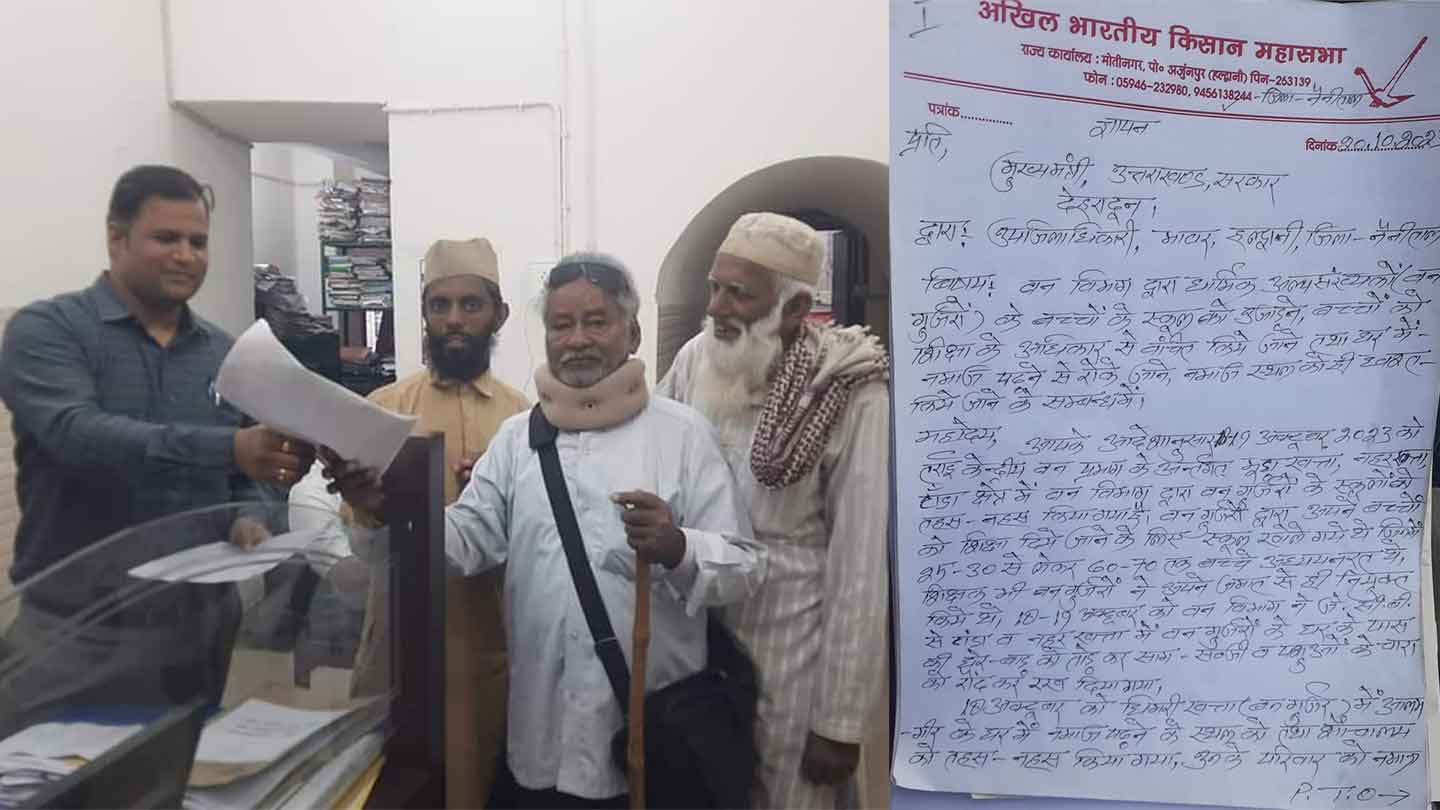 I
अखिल भारतीय किसान महासभा
राज्य कार्यालय : मोतीनगर, पो० अर्जुनपुर (हल्द्वानी) पिन-263139
फोन : 05946-232980, 9456138244 - जिला - नैनीताल
पत्रांक.............
ज्ञापन
दिनांक 20.10.202
प्रति,
मुख्यमंत्री, उत्तराखण्ड, सरकार
देहरादून,
द्वारा: उपजिलाधिकारी, भावर, हल्द्वानी, जिला - नैनीताल
विषय: वन विभाग द्वारा धार्मिक अल्पसंख्यकों (वन
गुर्जरों) के बच्चों के स्कूल को उजाड़ने, बच्चों को
शिक्षा के अधिकार से वंचित किये जाने तथा घर में-
नमाज पढ़ने से रोके जाने, नमाज स्थल को ही ध्वस्त-
किये जाने के सम्बन्ध में।
महोदय, आपके आदेशानुसार 19 अक्टूबर 2023 को
तराई केन्द्रीय वन प्रभाग के अन्तर्गत खत्ता,
टांडा क्षेत्र में वन विभाग द्वारा वन गुर्जरों के स्कूलों को
तहस - नहस किया गया है। वन गुर्जरों द्वारा अपने बच्चों
को शिक्षा दिये जाने के लिए स्कूल खोले गये थे जिनमें
25-30 से लेकर 60-70 तक बच्चे अध्ययनरत थे,
शिक्षक भी वन गुर्जरों ने अपने जमात से ही नियुक्त
किये थे, 18-19 अक्टूबर को वन विभाग ने जे. सी. बी.
से टांडा व नहर खत्ता में वन गुर्जरों के घर के पास
की घेर-बाड़ को तोड़ कर साग - सब्जी व पशुओं के चारा
को रौंद कर रख दिया गया,
18 अक्टूबर को खत्ता (वन गुर्जर) में आलम
-गीर के घर में नमाज पढ़ने के स्थल को तथा
को तहस - नहस किया गया, उनके परिवार को नमाज
P. T. O →